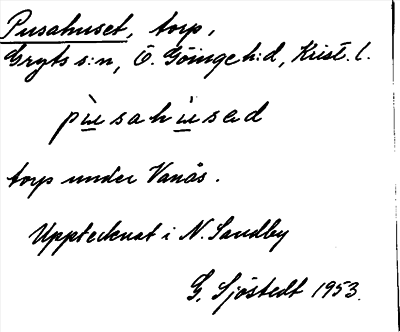 Pusahuset, torp,
Gryts s:n, Ö. Göinge h:d, Krist. l.
pùsahùsəd
torp under Vanås.
Upptecknat i N. Sandby
G. Sjöstedt 1953.